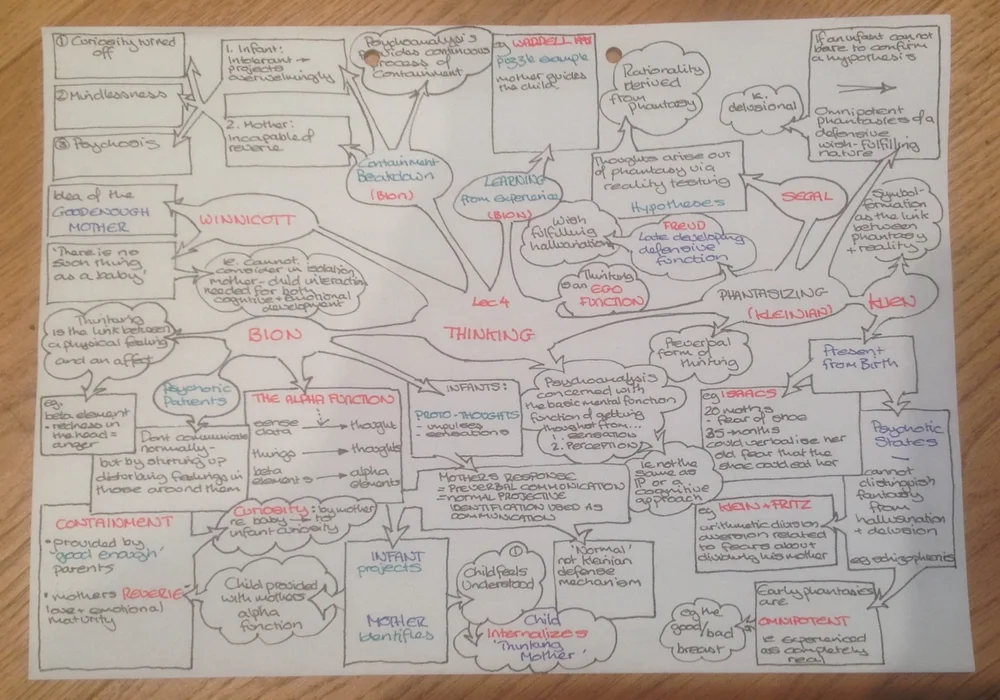 ① Curiosity turned
off
② Mindlessness
③ Psychosis
1. Infant:
Intolerant →
projects
overwhelmingly
2. Mother:
Incapable of
reverie
Psychoanalysis
provides continuous
process of
Containment
Containment
Breakdown
(Bion)
eg WADDELL
puzzle example
mother guides
the child.
LEARNING
from experience
(BION)
Rationality
derived
from phantasy
Thoughts arise out
of phantasy via
reality testing
Hypotheses
ie.
delusional
If an infant cannot
bare to confirm
a hypothesis
→
Omnipotent
phantasies of a
defensive
wish-fulfilling
nature
SEGAL
Symbol-
formation
as the link
between
phantasy
+ reality
Idea of the
GOOD ENOUGH
MOTHER
'There is no
such thing
as a baby'
WINNICOTT
ie. Cannot
consider in isolation
mother-child interaction
needed for both
cognitive + emotional
development
Wish
fulfilling
hallucination
FREUD
Late developing
defensive
function
Thinking
is an EGO
FUNCTION
PHANTASIZING
(KLEINIAN)
KLIEN
Lec 4
THINKING
BION
Thinking
is the link between
a physical feeling
and an affect
eg.
beta element
- redness in
the head =
anger
Psychotic
Patients
Dont communicate
normally -
but by stirring up
disturbing feelings in
those around them
THE ALPHA FUNCTION
sense
data → thought
things → thoughts
beta
elements → alpha
elements
INFANTS:
PROTO-THOUGHTS
- impulses
- sensations
Psychoanalysis
concerned with
the basic mental function
function of getting
thought from...
1. SENSATION
2. PERCEPTION
ie. not the
same as
IP or a
cognitive
approach
Preverbal
form of
thinking
Present
from Birth
eg ISAACS
20 mnths
- fear of shoe
35-months
could verbalise her
old fear that the
shoe could eat her
Psychotic
States
—
cannot
distinguish
fantasy
from
hallusination
+ delusion
eg schizophrenia
MOTHERS RESPONSE
= PREVERBAL COMMUNICATION
= NORMAL PROJECTIVE
IDENTIFICATION USED AS
COMMUNICATION
eg KLEIN + FRITZ
arithmetic division
aversion related
to fears about
dividing his mother
CONTAINMENT
• provided by
'good enough'
parents
• mothers REVERIE
love + emotional
maturity
Curiosity: by mother
re baby → to
infant curiosity
Child provided
with mothers
alpha
function
INFANT
projects
MOTHER
Identifies
①
Child feels
Understood
Child
Internalizes
'Thinking
Mother'
'Normal'
not kleinian
defense
mechanism
eg the
good/bad
breast
Early phantasies
are
OMNIPOTENT
ie experienced
as completely
real